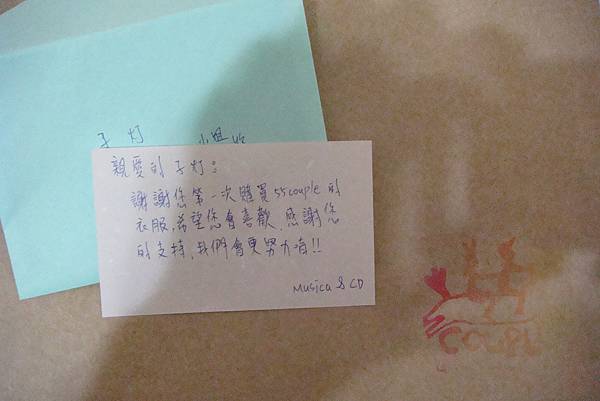 子灯 小姐收
親愛的子灯：
謝謝您第一次購買55couple的
衣服，希望您會喜歡，感謝您
的支持，我們會更努力唷!!
Musica & CD
COUPL